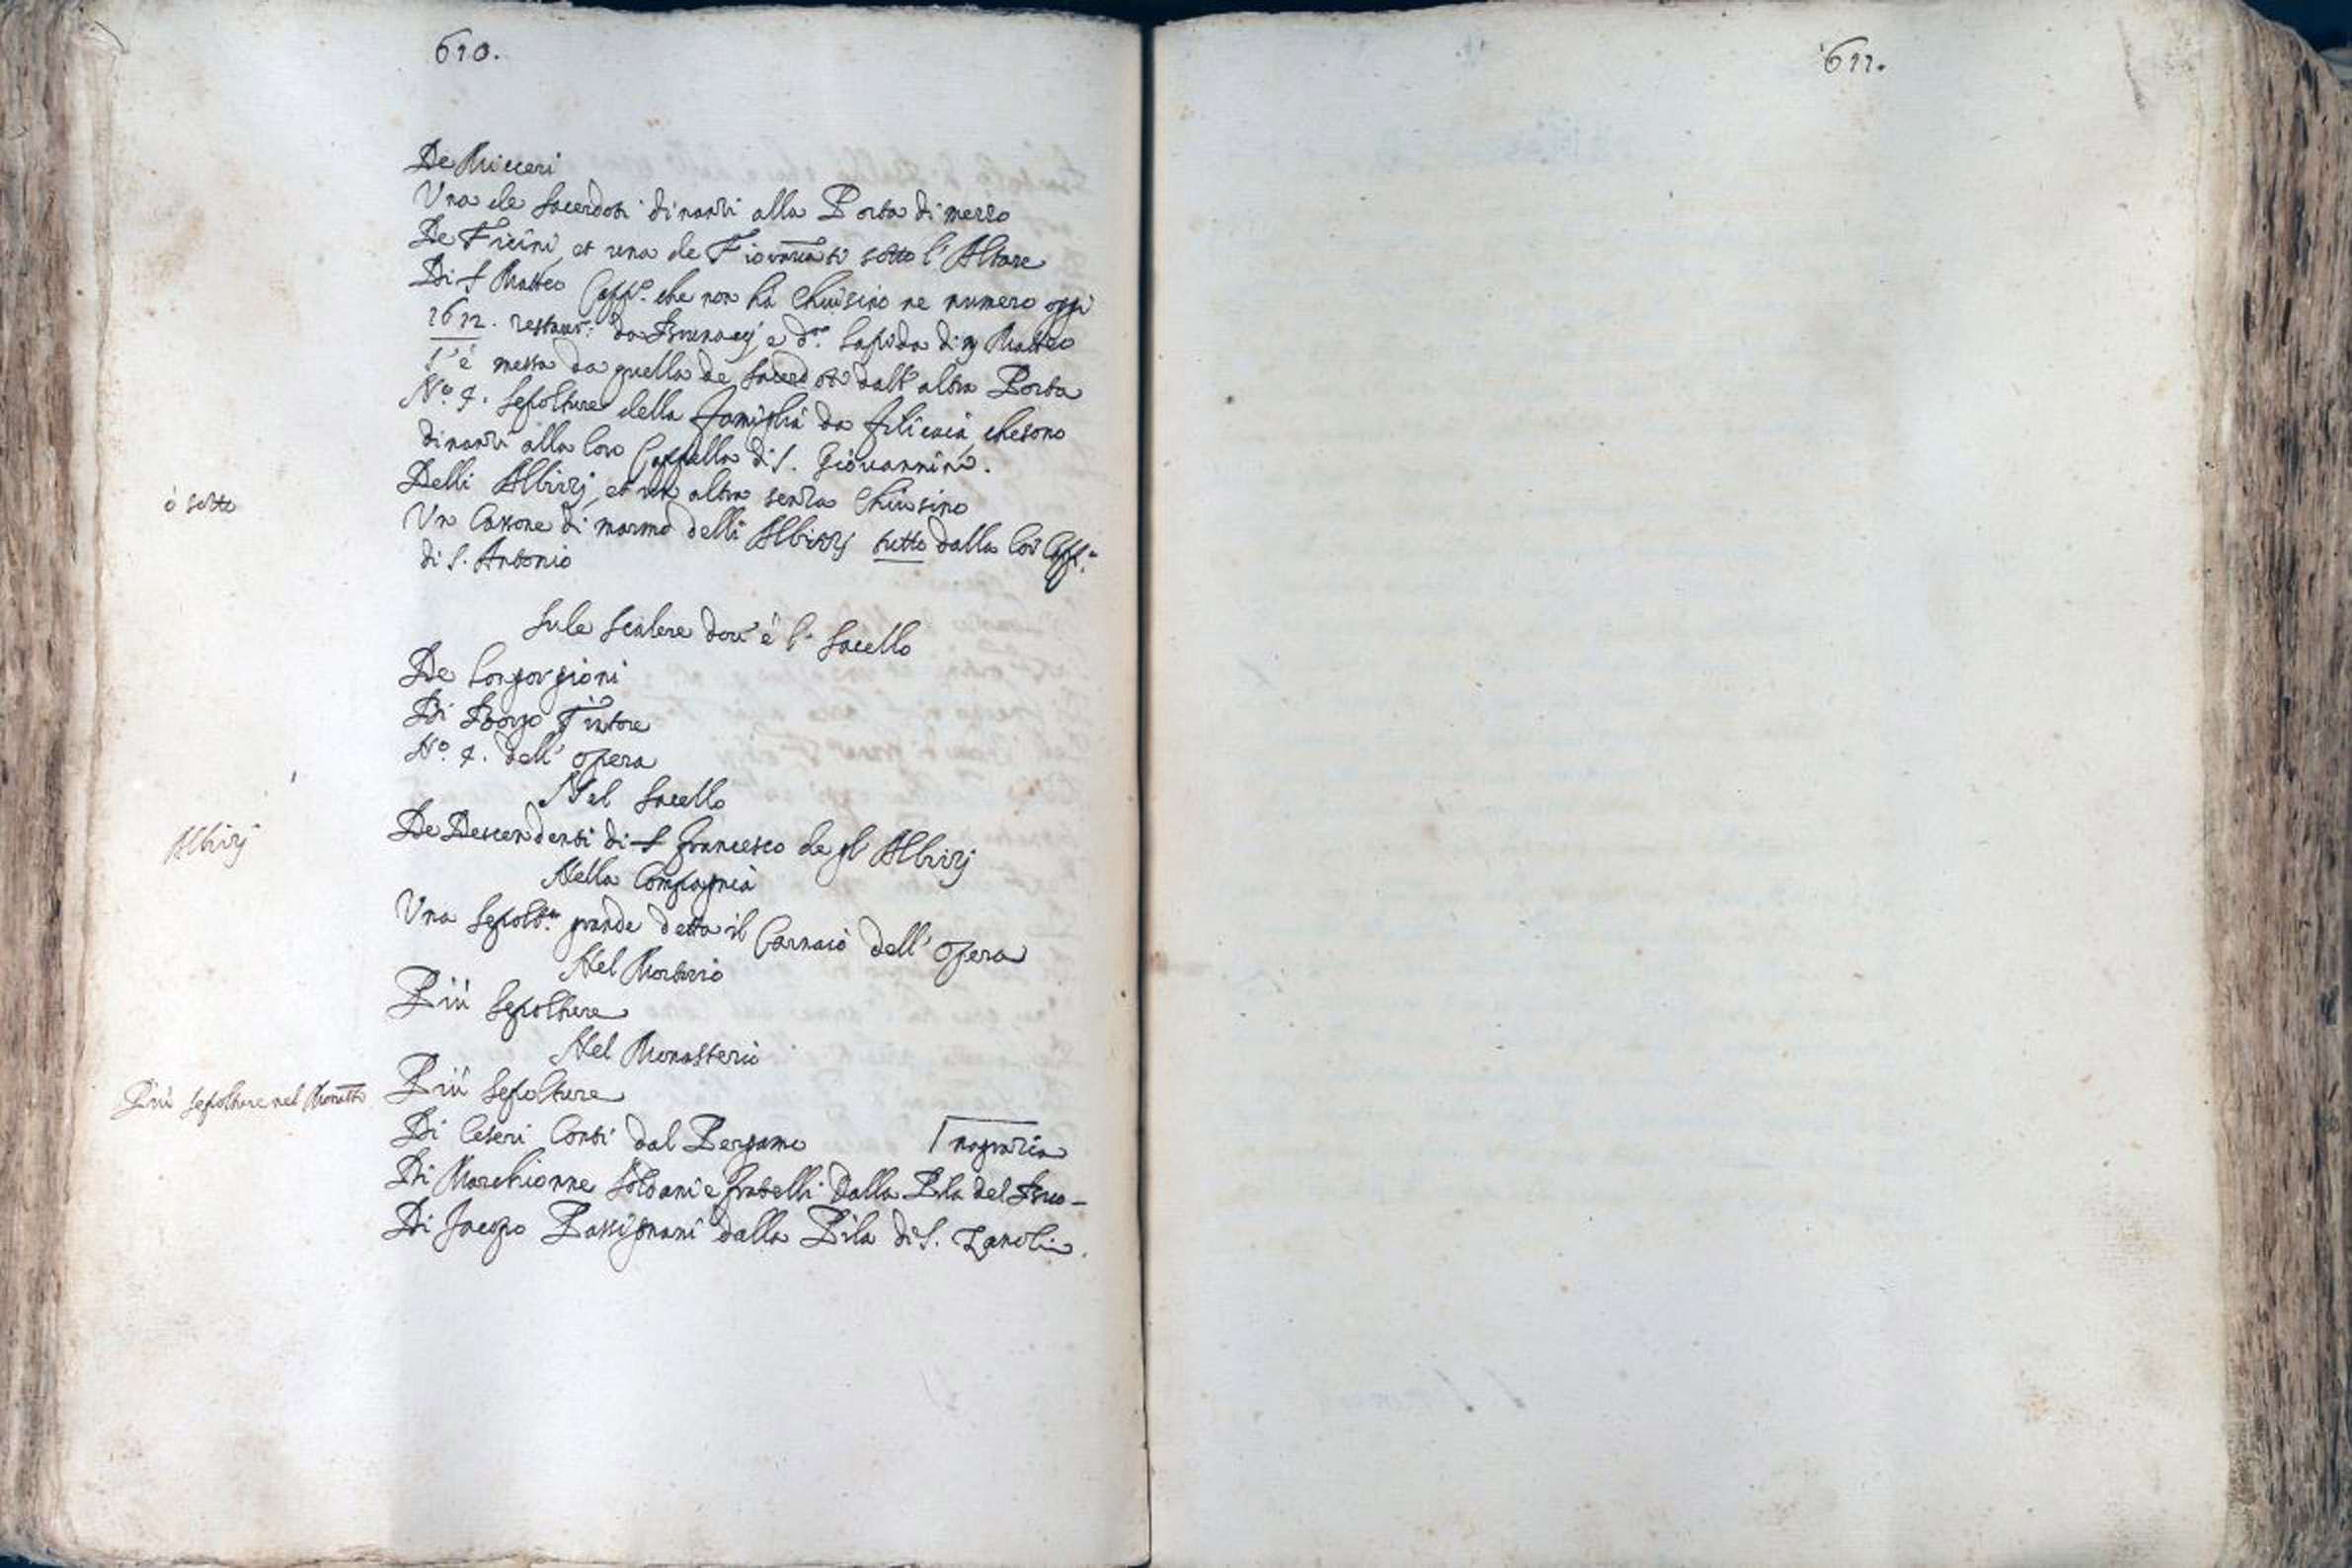 610.
De Ricceri
Una de Sacerdoti dinanzi alla Porta di mezzo
De Ficini, et una de Fiovanati sotto l'Altare
Di S Matteo Capp.ª che non hà Chiusino ne numero oggi
1612. restaur: da Brunacij e d.ª Lapida di S Matteo
s'è messa da quella de Sacerdoti dall'altra Porta
N.º 4. Sepolture della Famiglia da Filicaia, che sono
dinanzi alla loro Cappella di S. Giovannino.
Delli Albizij, et un altra senza Chiusino
ò sotto
Un Cassone di marmo delli Albizzij tutto dalla lor Capp.ª
di S. Antonio
Sule Scalere dov'è l. Sacello
De Longorgioni
Di Borgo Tintore
N.º 4. dell'opera
Nel Sacello
Albizij
De Descendenti di S Francesco degl'Albizij
Nella Compagnia
Una Sepolt.ra grande detta il Carnaio dell'opera
Nel Mortorio
Più Sepolture
Nel Monasterio
Più Sepolture nel Monastº
Più Sepolture
Di Ceseri Conti dal Pergamo
nagratia
Di Marchionne Soldani e Fratelli dalla Pila del Truo-
Di Jacopo Passignani dalla Pila di S. Zanobi.
611.